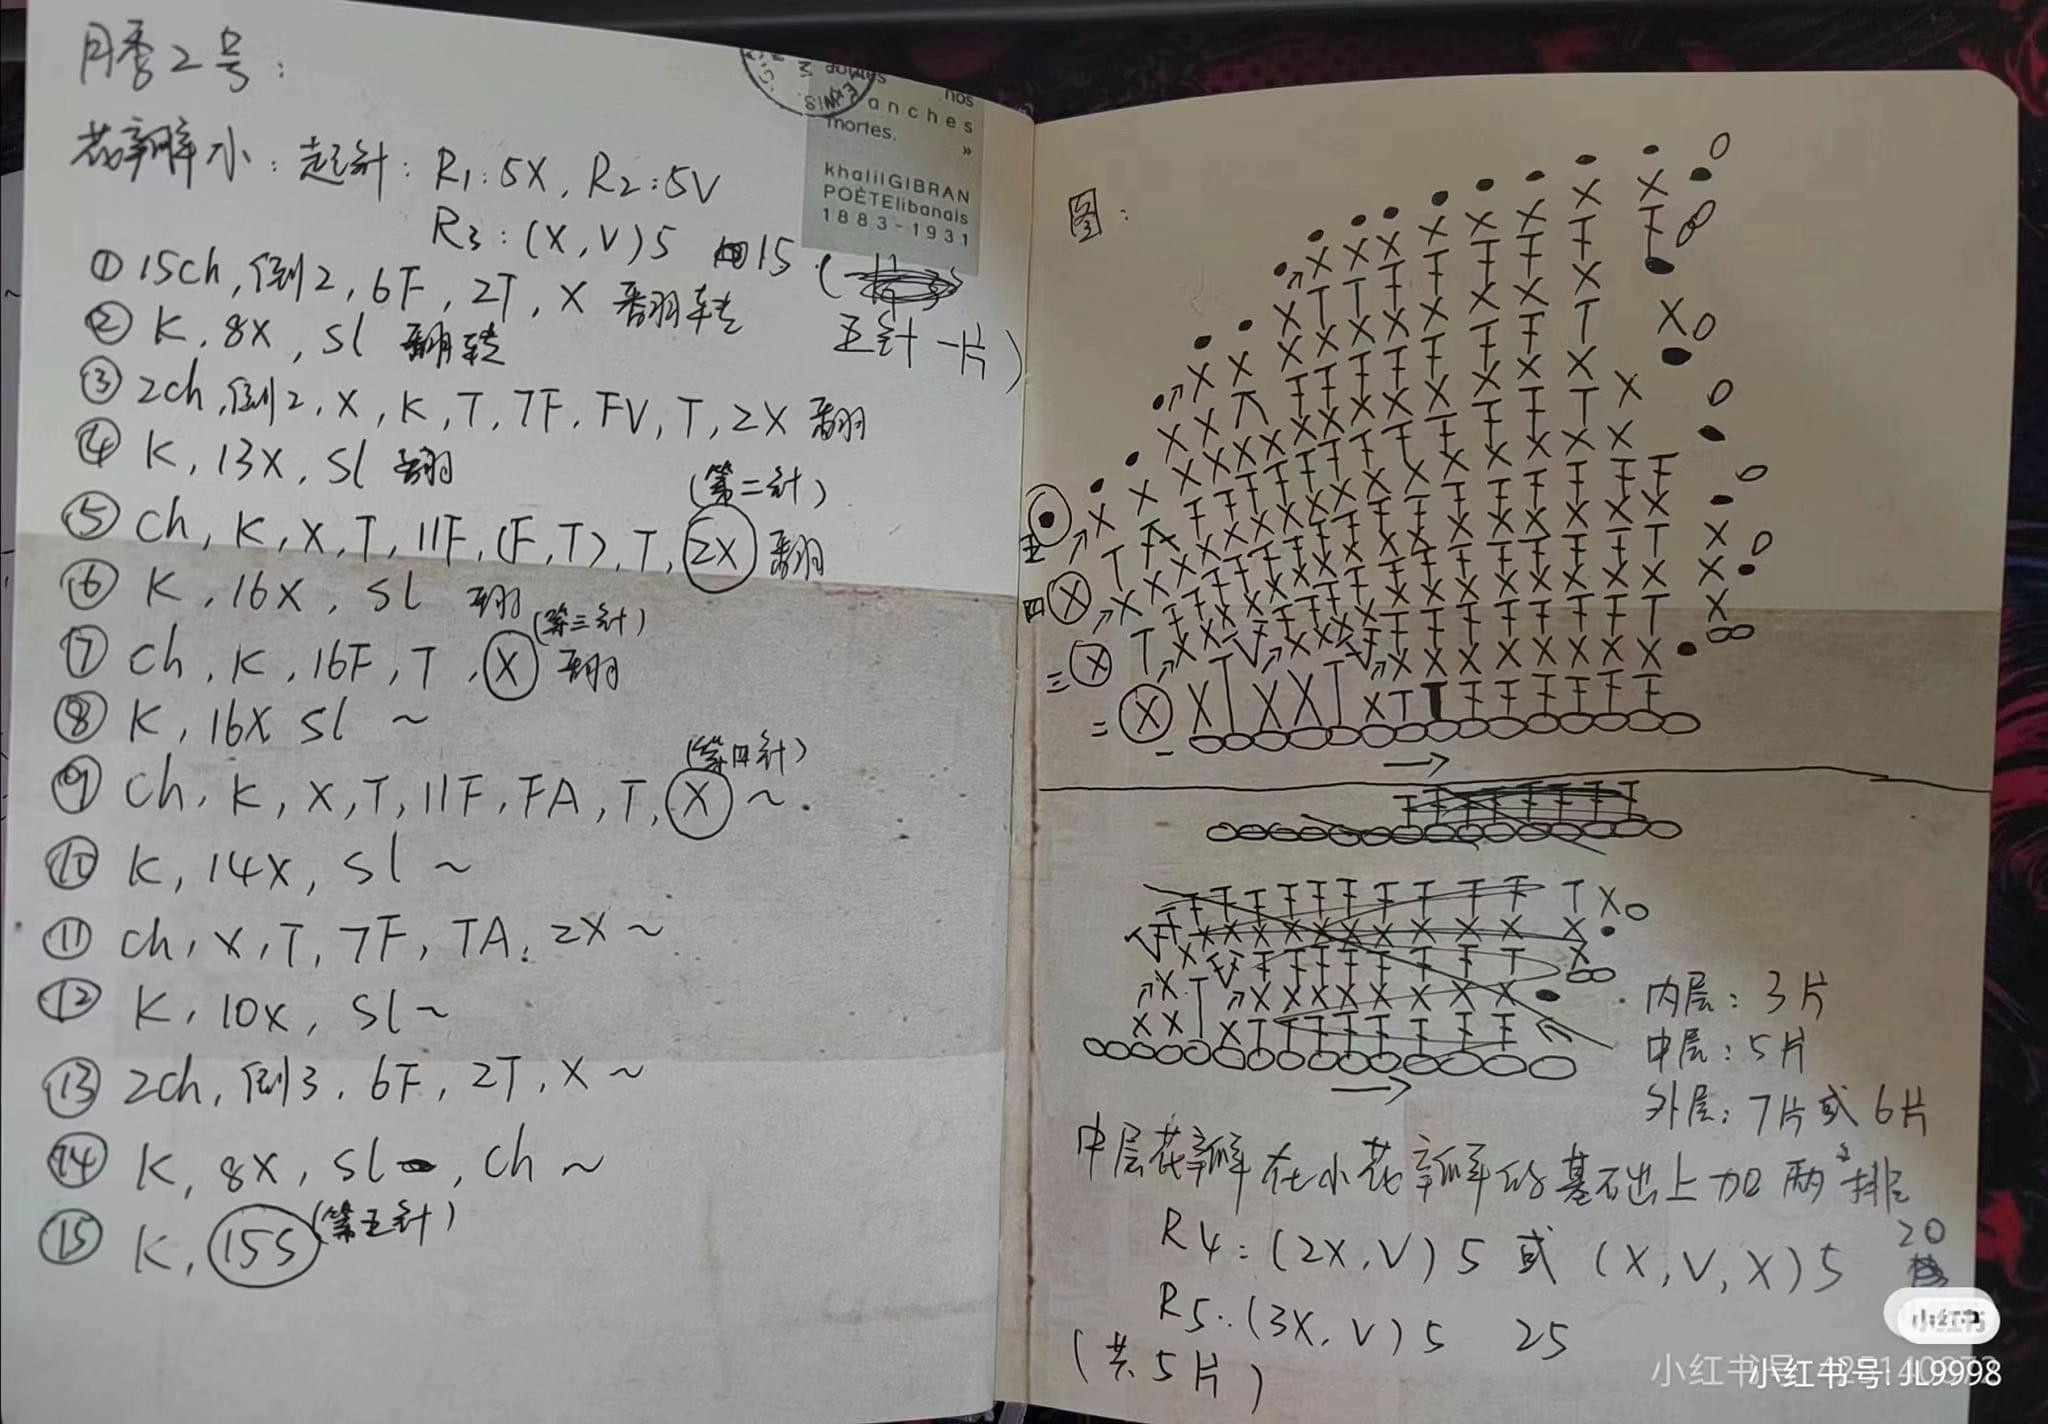 月季2号:
花瓣小:起针:R1:5X,R2:5V
R3:(X,V)5 15
(五针一片)
① 15ch,倒2,6F,2T,X 翻转
② K,8X,sl 翻转
③ 2ch,倒2,X,K,T,7F,FV,T,2X 翻
④ K,13X,sl 翻
(第二针)
⑤ ch,K,X,T,11F,(F,T),T,2X 翻
⑥ K,16X,sl 翻
(第三针)
⑦ ch,K,16F,T,X 翻
⑧ K,16X sl ~
(第四针)
⑨ ch,K,X,T,11F,FA,T,X ~.
⑩ K,14X,sl ~
⑪ ch,X,T,7F,TA,2X ~
⑫ K,10X,sl ~
⑬ 2ch,倒3,6F,2T,X ~
⑭ K,8X,sl,ch ~
⑮ K,15S(第五针)
nos
anches
mortes.
»
khalilGIBRAN
POÈTElibanais
1883-1931
图:
五
四
三
二
一
内层:3片
中层:5片
外层:7片或6片
中层花瓣在小花瓣的基础上加两排
R4:(2X,V)5 或 (X,V,X)5 20
R5:(3X,V)5 25
(共5片)
小红书
小红书号:JL9998